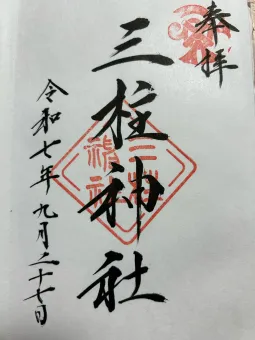 奉拝
三柱神社
令和七年九月二十七日